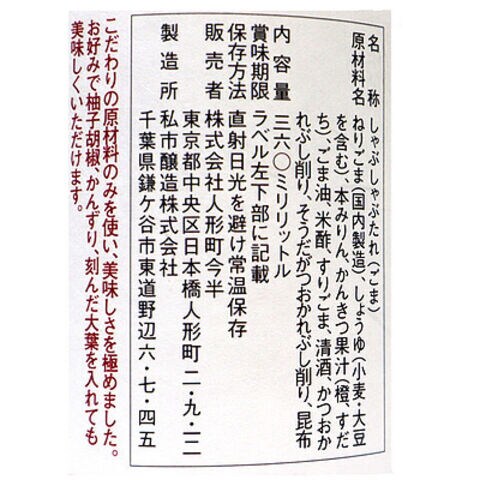 名称 しゃぶしゃぶたれ（ごま）
原材料名 ねりごま（国内製造）、しょうゆ（小麦・大豆
を含む）、本みりん、かんきつ果汁（橙、すだ
ち）、ごま油、米酢、すりごま、清酒、かつおか
れぶし削り、そうだがつおかれぶし削り、昆布
内容量 三六〇ミリリットル
賞味期限 ラベル左下部に記載
保存方法 直射日光を避け常温保存
販売者 株式会社人形町今半
東京都中央区日本橋人形町二・九・十二
製造所 私市醸造株式会社
千葉県鎌ケ谷市東道野辺六・七・四五
こだわりの原材料のみを使い、美味しさを極めました。
お好みで柚子胡椒、かんずり、刻んだ大葉を入れても
美味しくいただけます。